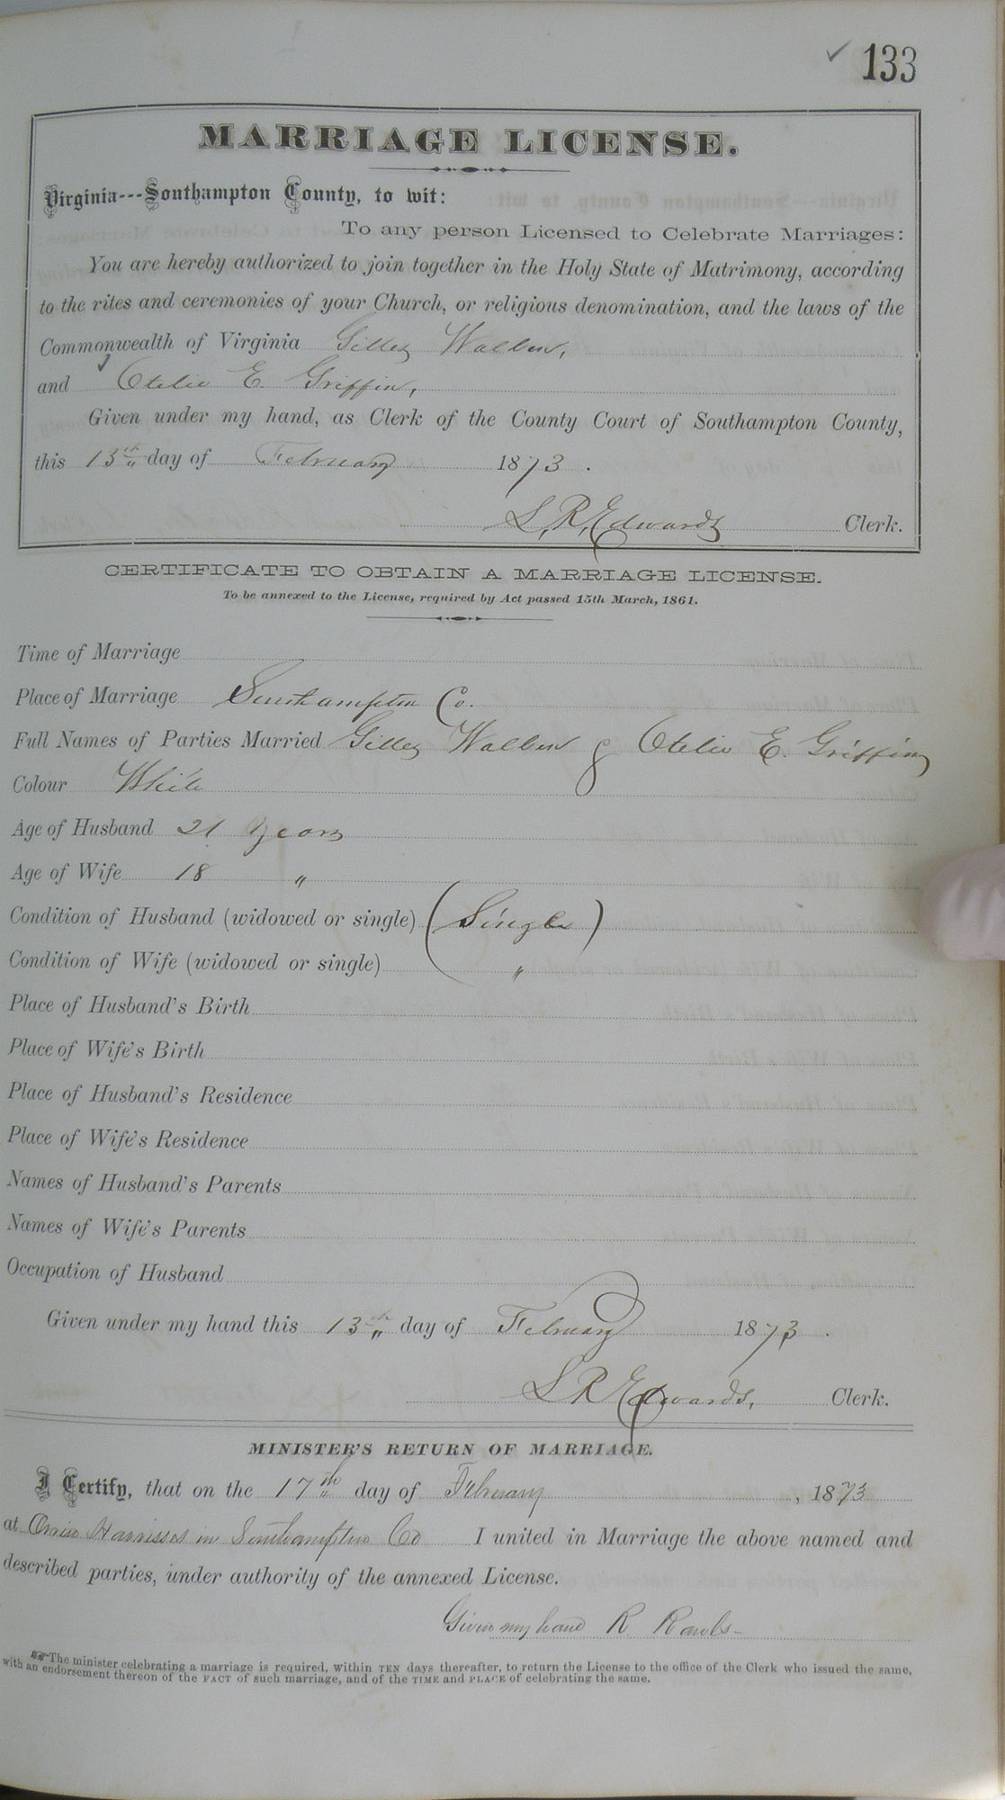 133
MARRIAGE LICENSE.
Virginia---Southampton County, to wit:
To any person Licensed to Celebrate Marriages:
You are hereby authorized to join together in the Holy State of Matrimony, according
to the rites and ceremonies of your Church, or religious denomination, and the laws of the
Commonwealth of Virginia
and E. Griffin,
Given under my hand, as Clerk of the County Court of Southampton County,
this 13th day of February 1873.
S. R. Edwards Clerk.
CERTIFICATE TO OBTAIN A MARRIAGE LICENSE.
To be annexed to the License, required by Act passed 15th March, 1861.
Time of Marriage
Place of Marriage Southampton Co.
Full Names of Parties Married & E. Griffin
Colour White
Age of Husband 21 Years
Age of Wife 18 "
Condition of Husband (widowed or single) (Single)
Condition of Wife (widowed or single) "
Place of Husband's Birth
Place of Wife's Birth
Place of Husband's Residence
Place of Wife's Residence
Names of Husband's Parents
Names of Wife's Parents
Occupation of Husband
Given under my hand this 13th day of February 1873.
S R Edwards, Clerk.
MINISTER'S RETURN OF MARRIAGE.
I Certify, that on the 17th day of February, 1873
at in Southampton Co I united in Marriage the above named and
described parties, under authority of the annexed License.
Given my hand R Rawls-
The minister celebrating a marriage is required, within TEN days thereafter, to return the License to the office of the Clerk who issued the same,
with an endorsement thereon of the FACT of such marriage, and of the TIME and PLACE of celebrating the same.